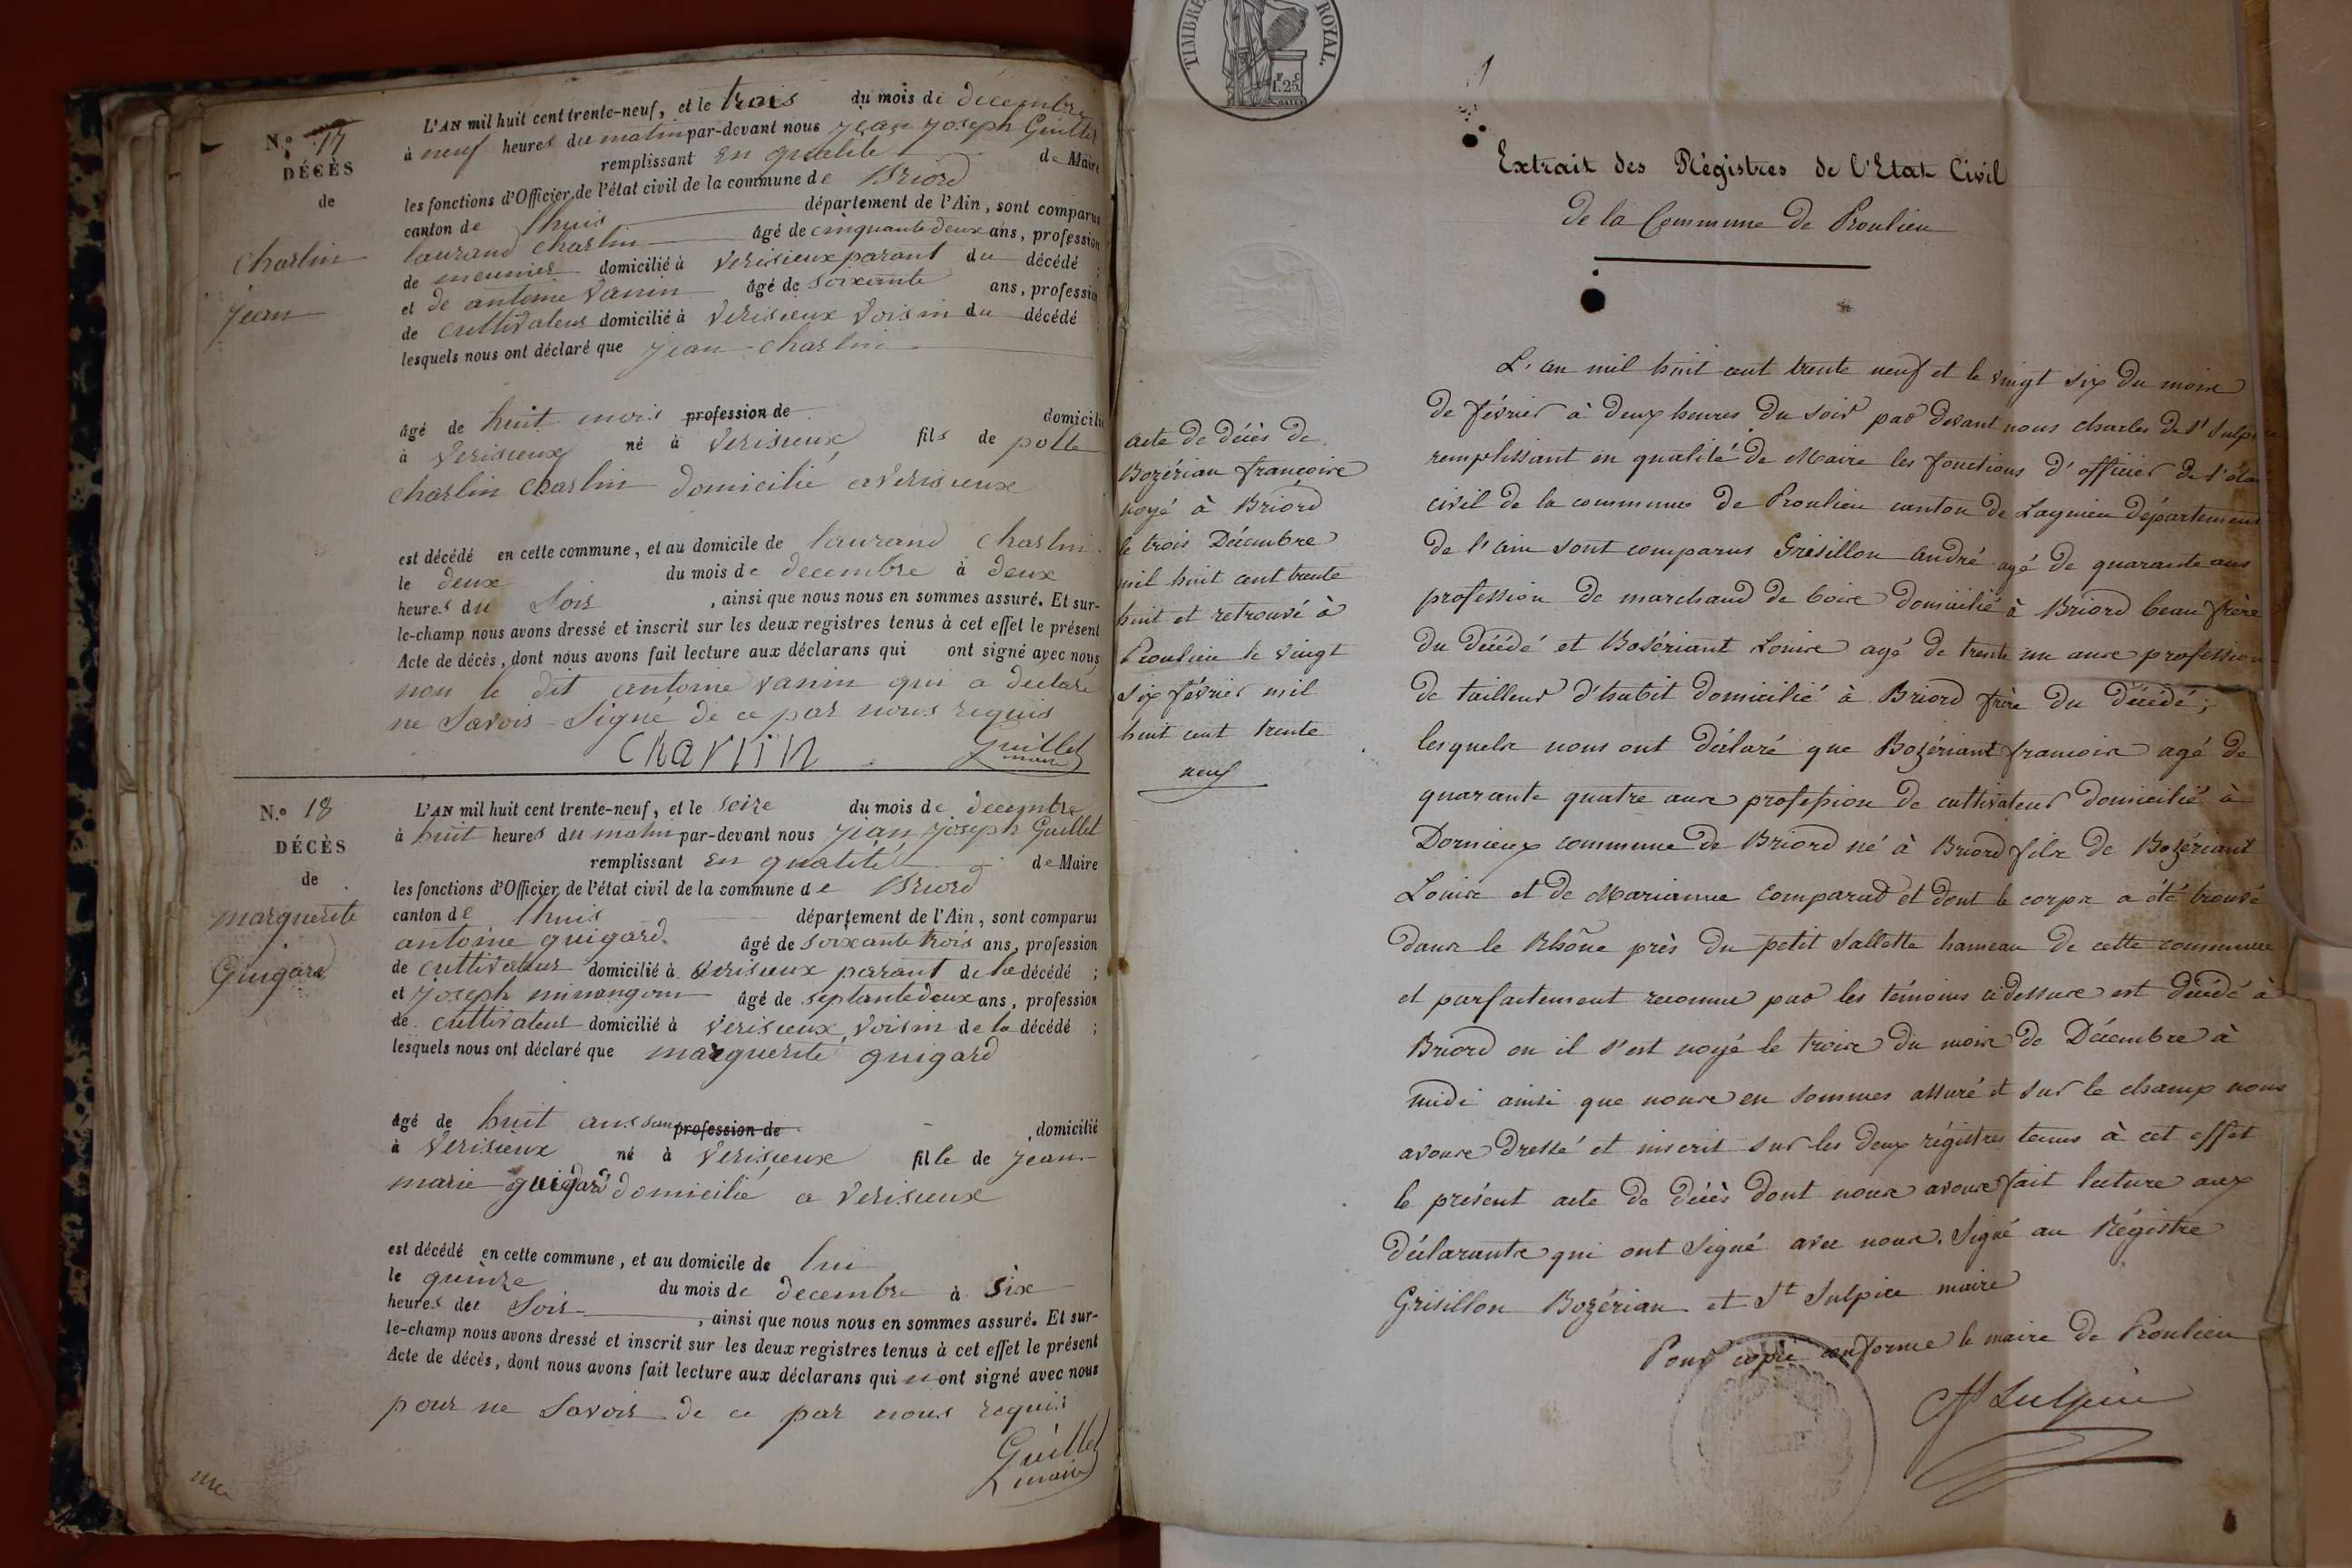 N.o 17
DÉCÈS
de
Charlin
Jean
L'AN mil huit cent trente-neuf, et le trois du mois de decembre
à neuf heures du matin par-devant nous jean joseph Guillet
remplissant en qualité de Maire
les fonctions d'Officier de l'état civil de la commune de Briord
canton de lhuis département de l'Ain, sont comparus
laurand charlin âgé de cinquante deux ans, profession
de meunier domicilié à Verisieux parant du décédé ;
et de antoine Vanin âgé de soixante ans, profession
de cultivateur domicilié à Verisieux Voisin du décédé ;
lesquels nous ont déclaré que jean charlin
âgé de huit mois profession de domicilié
à Verisieux né à Verisieux fils de
charlin charlin domicilié a verisieux
est décédé en cette commune, et au domicile de laurand charlin
le deux du mois de decembre à deux
heures du Soir , ainsi que nous nous en sommes assuré. Et sur-
le-champ nous avons dressé et inscrit sur les deux registres tenus à cet effet le présent
Acte de décès, dont nous avons fait lecture aux déclarans qui ont signé avec nous
non le dit antoine vanin qui a declaré
ne Savoir Signé de ce par nous requis
CharliN Guillet
maire
N.o 18
DÉCÈS
de
marguerite
Guigard
L'AN mil huit cent trente-neuf, et le seize du mois de decembre
à huit heures du matin par-devant nous jean joseph Guillet
remplissant en qualité de Maire
les fonctions d'Officier de l'état civil de la commune de Briord
canton de lhuis département de l'Ain, sont comparus
antoine guigard âgé de soixante trois ans, profession
de cultivateur domicilié à verisieux parant de la décédé ;
et joseph âgé de septante deux ans, profession
de cultivateur domicilié à verisieux, voisin de la décédé ;
lesquels nous ont déclaré que marguerite guigard
âgé de huit ans sans profession de domicilié
à Verisieux né à Verisieux fille de jean
marie guigard domicilié a verisieux
est décédé en cette commune, et au domicile de lui
le quinze du mois de decembre à six
heures du Soir , ainsi que nous nous en sommes assuré. Et sur-
le-champ nous avons dressé et inscrit sur les deux registres tenus à cet effet le présent
Acte de décès, dont nous avons fait lecture aux déclarans qui n ont signé avec nous
pour ne Savoir de ce par nous requis
Guillet
maire
TIMBRE ROYAL
1.25
Extrait des Régistres de l'Etat Civil
de la Commune de Proulieu
acte de décès de
Bozérian francois
noyé à Briord
le trois Décembre
mil huit cent trente
huit et retrouvé à
Proulieu le vingt
six février mil
huit cent trente
neuf
L'an mil huit cent trente neuf et le vingt six du mois
de février à deux heures du soir par devant nous charles de St Sulpice
remplissant en qualité de Maire les fonctions d'officier de l'état
civil de la commune de Proulieu canton de Lagnieu département
de l'ain sont comparus Grisillon andré agé de quarante ans
profession de marchand de bois domicilié à Briord beau frère
du décédé et Bosériant Louis agé de trente un ans profession
de tailleur d'habit domicilié à Briord frère du décédé ;
lesquels nous ont déclaré que Bozériant francois agé de
quarante quatre ans profession de cultivateur domicilié à
Dornieux commune de Briord né à Briord fils de Bozériant
Louis et de Marianne Comparat et dont le corps a été trouvé
dans le Rhône près du petit Sallette hameau de cette commune
et parfaitement reconnu par les témoins ci dessus est décédé à
Briord ou il s'est noyé le trois du mois de Décembre à
midi ainsi que nous en sommes assuré et sur le champ nous
avons dressé et inscrit sur les deux régistres tenus à cet effet
le présent acte de décès dont nous avons fait lecture aux
déclarants qui ont signé avec nous. Signé au Régistre
Grisillon Bozérian et St Sulpice maire
Pour copie conforme le maire de Proulieu
St Sulpice